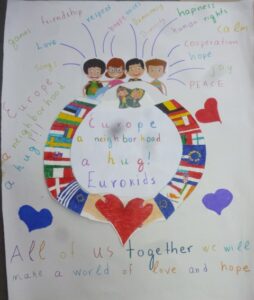 games
friendship
respect
happiness
Democracy
hapness
human rights
calm
Love
Songs
cooperation
hope
joy
PEACE
Europe
a neighborhood
a hug!
Europe
a neighborhood
a hug!
Eurokids
All of us together we will
make a world of love and hope